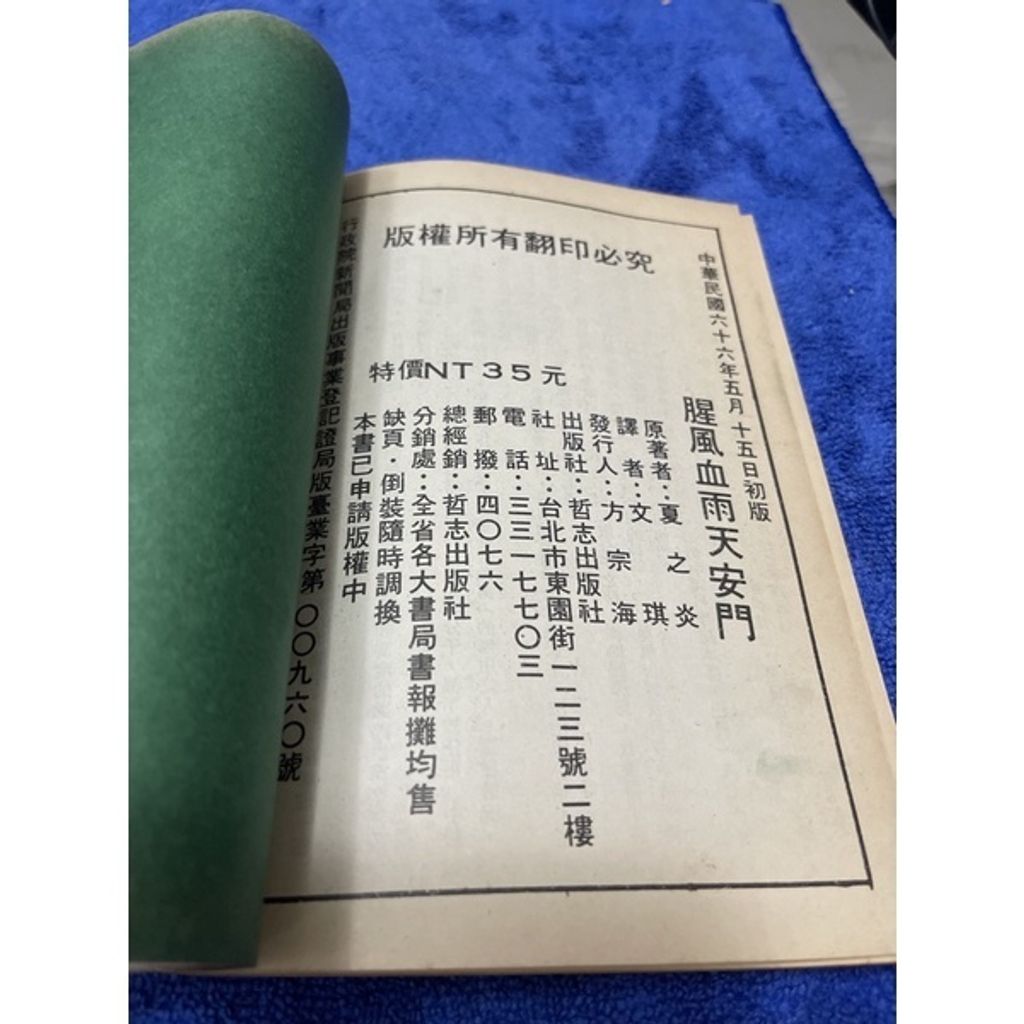 版權所有翻印必究
中華民國六十六年五月十五日初版
腥風血雨天安門
原著者：夏之炎
譯者：文琪
發行人：方宗海
出版社：哲志出版社
社址：台北市東園街一二三號二樓
電話：三三一七七〇三
郵撥：四〇七六
總經銷：哲志出版社
分銷處：全省各大書局書報攤均售
缺頁．倒裝隨時調換
本書已申請版權中
特價NT35元
行政院新聞局出版事業登記證局版臺業字第〇〇九六〇號